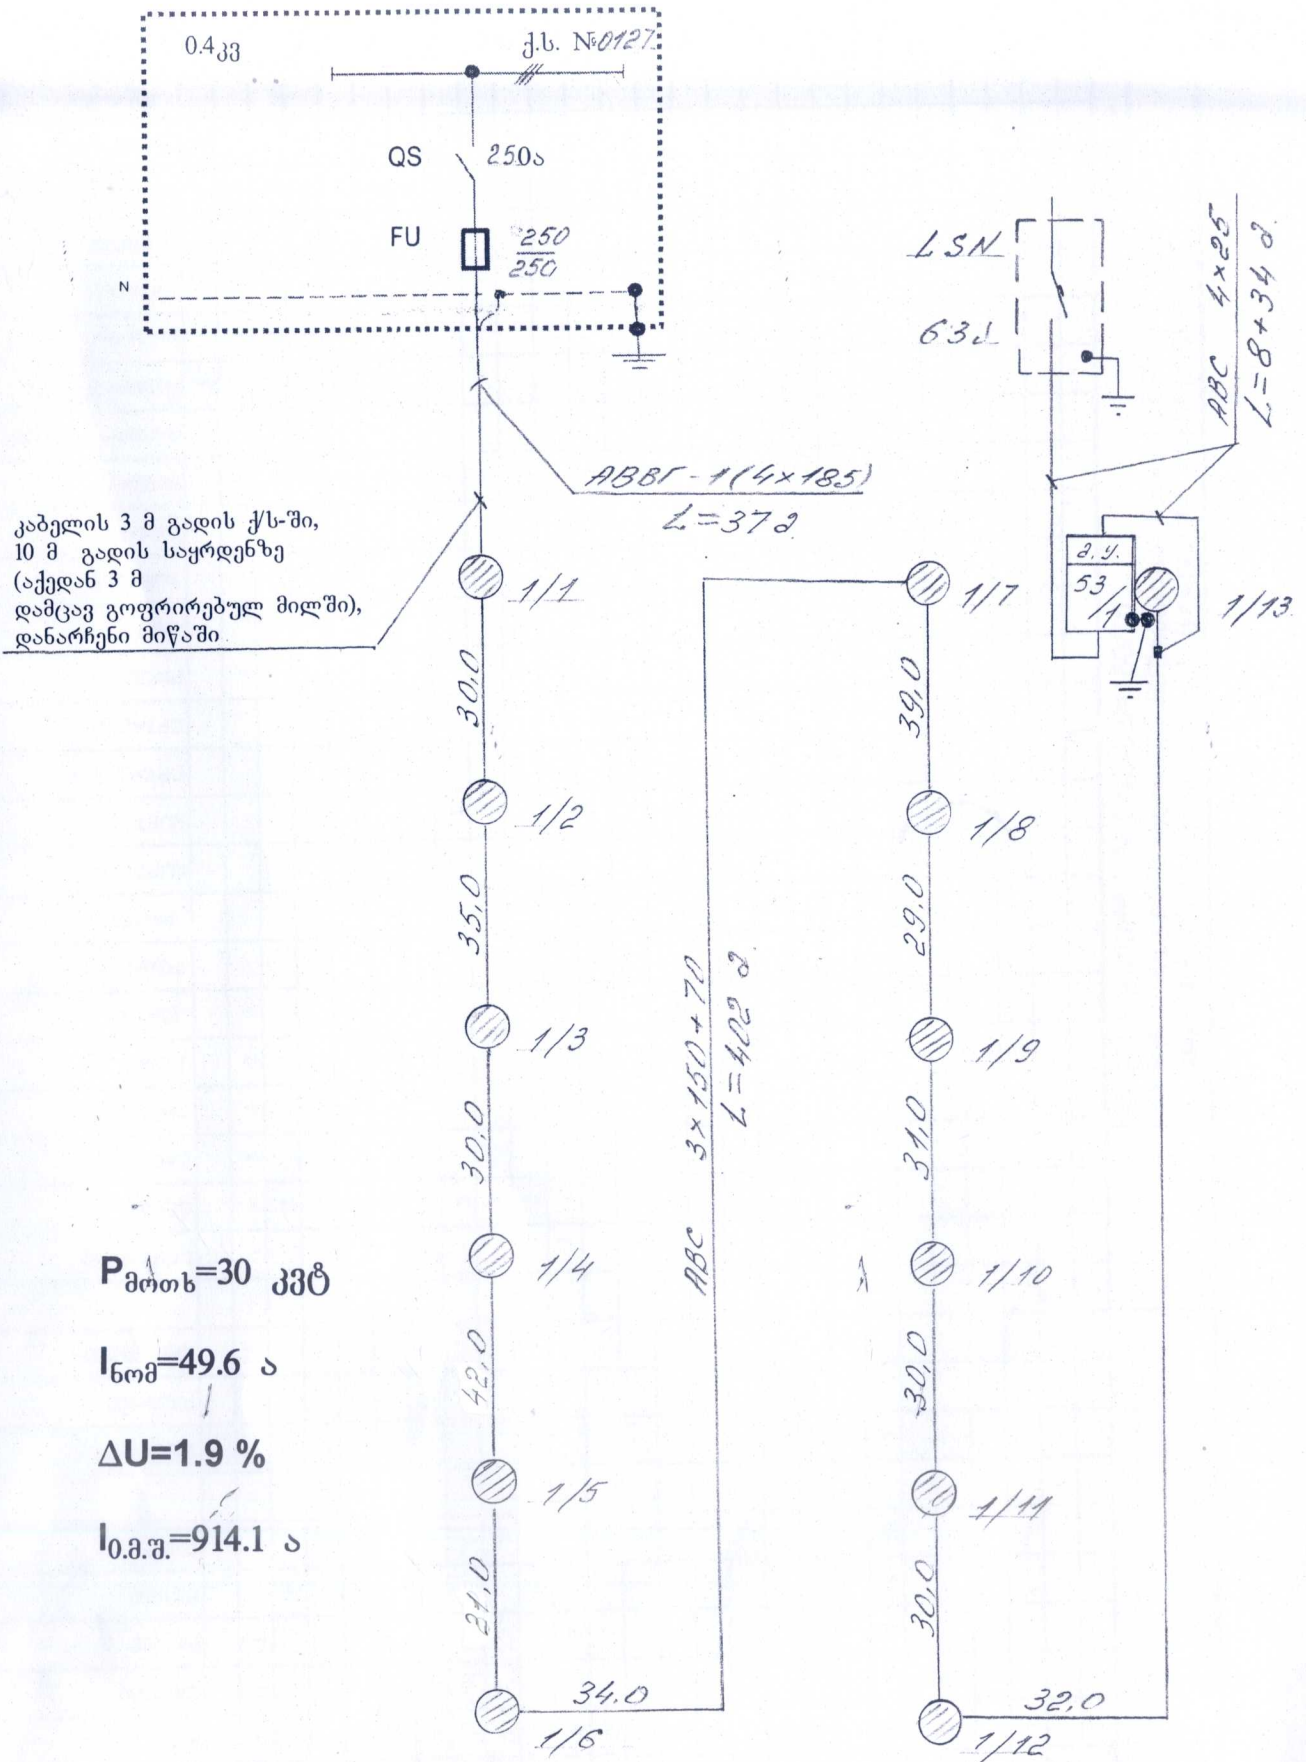 0.4კვ
ქ.ს. №0127
QS 250ა
FU 250
250
N
LSN
63ა
ABC 4×25
L=8+34 მ
АВВГ-1(4×185)
L=37მ
კაბელის 3 მ გადის ქ/ს-ში,
10 მ გადის საყრდენზე
(აქედან 3 მ
დამცავ გოფრირებულ მილში),
დანარჩენი მიწაში
1/1
30,0
1/2
35,0
1/3
30,0
1/4
42,0
1/5
1/6
34.0
ABC 3×150+70
L=402 მ
1/7
39,0
1/8
29,0
1/9
31,0
1/10
30,0
1/11
30,0
1/12
32,0
53
/1
1/13
Pმოთხ=30 კვტ
Iნომ=49.6 ა
ΔU=1.9 %
I0.მ.შ.=914.1 ა